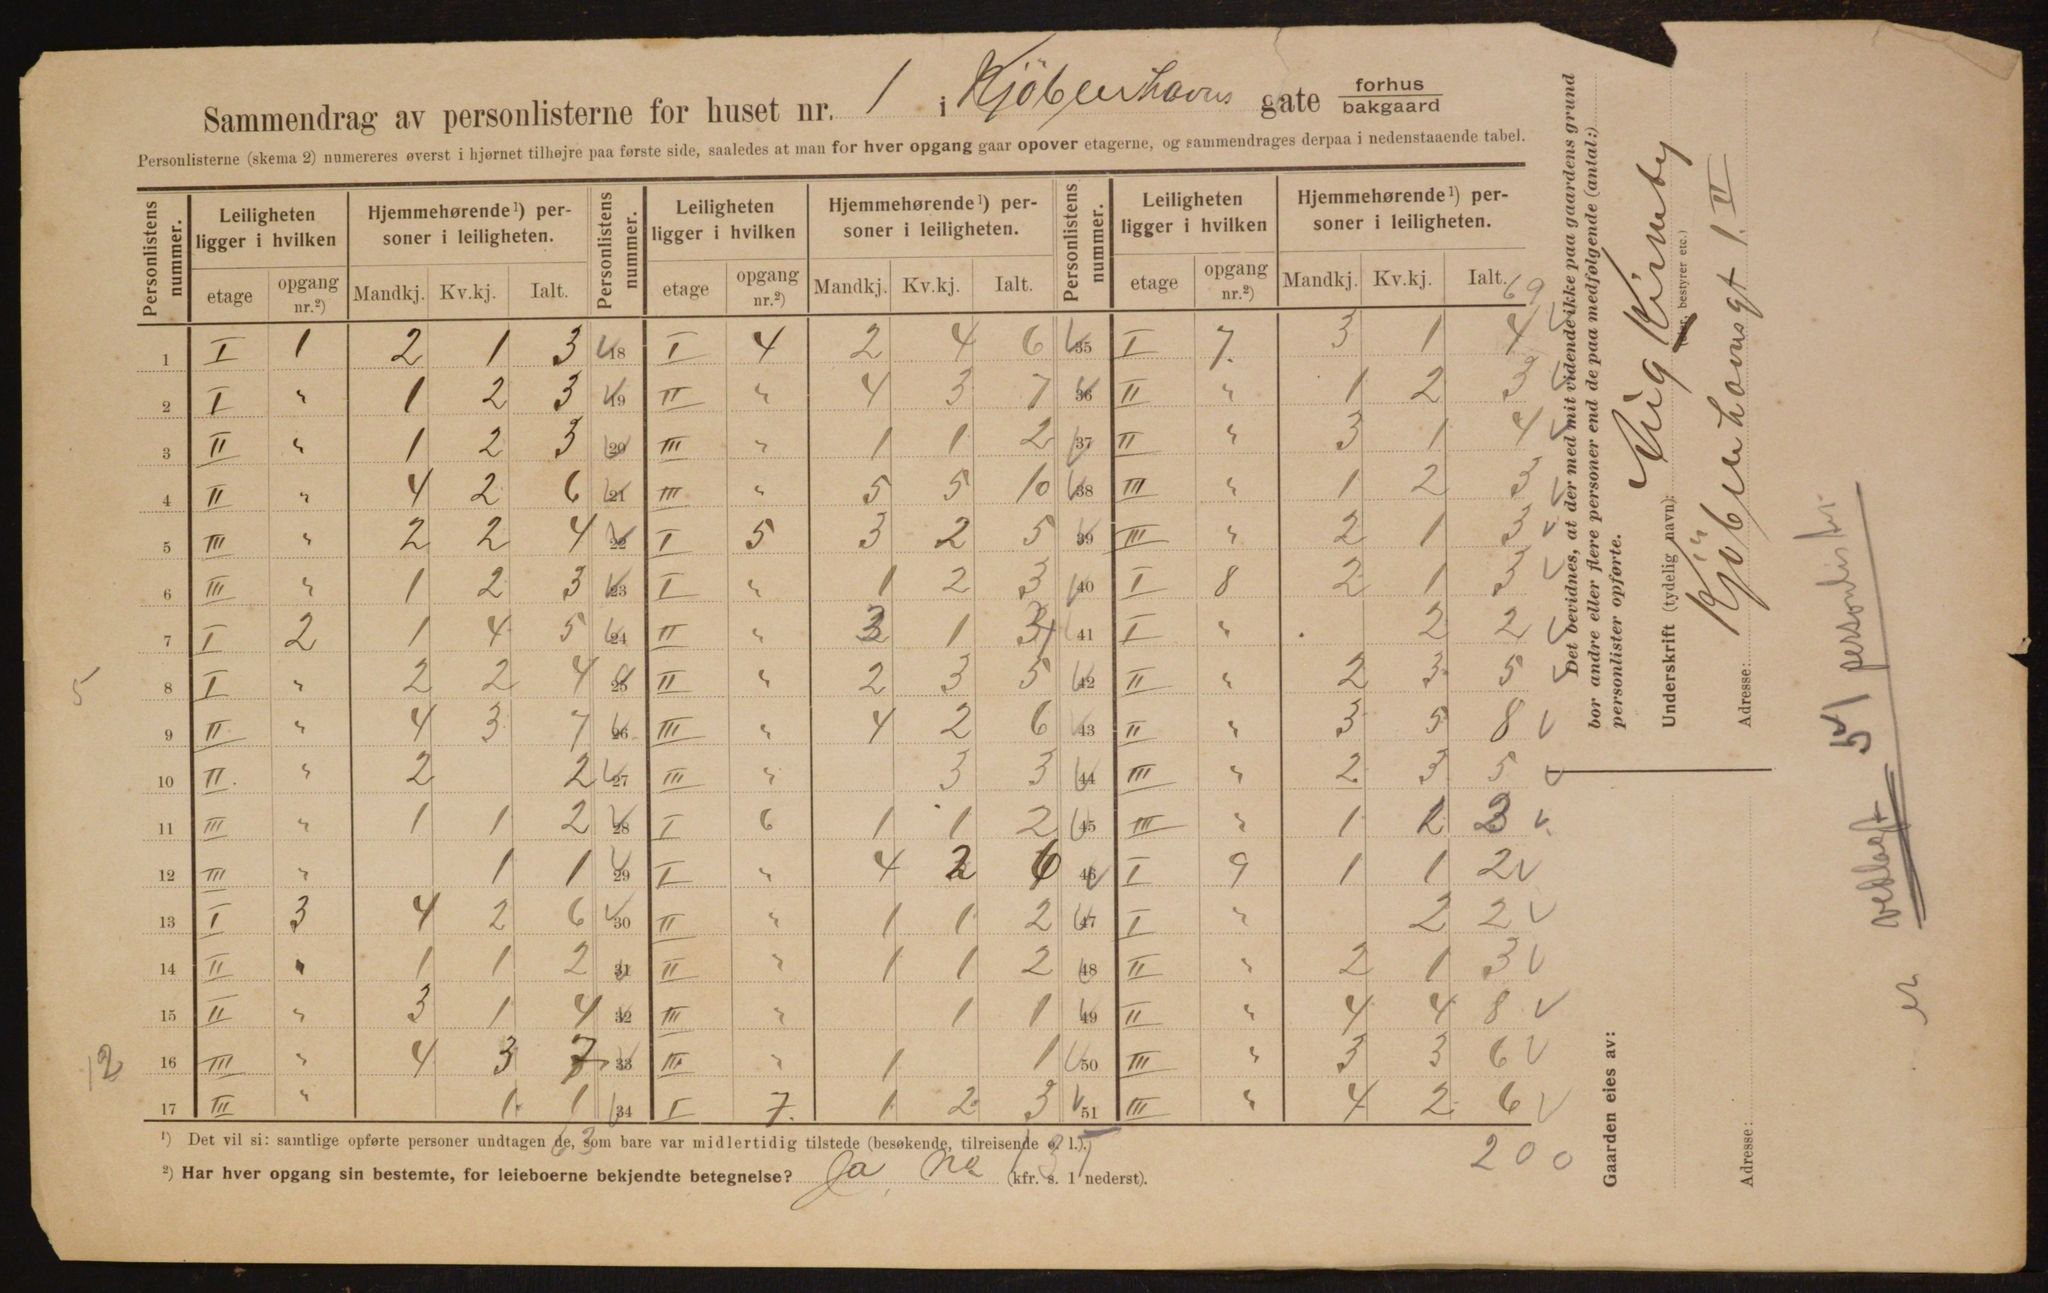 Sammendrag av personlisterne for huset nr. 1 i Kjöbenhavns gate forhus bakgaard
Personlisterne (skema 2) numereres øverst i hjørnet tilhøjre paa første side, saaledes at man for hver opgang gaar opover etagerne, og sammendrages derpaa i nedenstaaende tabel.
Personlistens nummer. Leiligheten ligger i hvilken Hjemmehørende¹) personer i leiligheten. Personlistens nummer. Leiligheten ligger i hvilken Hjemmehørende¹) personer i leiligheten. Personlistens nummer. Leiligheten ligger i hvilken Hjemmehørende¹) personer i leiligheten.
etage opgang nr.²) Mandkj. Kv.kj. Ialt. etage opgang nr.²) Mandkj. Kv.kj. Ialt. etage opgang nr.²) Mandkj. Kv.kj. Ialt.
69
1 I 1 2 1 3 18 I 4 2 4 6 35 I 7. 3 1 4
2 I " 1 2 3 19 II " 4 3 7 36 II " 1 2 3
3 II " 1 2 3 20 III " 1 1 2 37 II " 3 1 4
4 II " 4 2 6 21 III " 5 5 10 38 III " 1 2 3
5 III " 2 2 4 22 I 5 3 2 5 39 III " 2 1 3
6 III " 1 2 3 23 I " 1 2 3 40 I 8 2 1 3
7 I 2 1 4 5 24 II " 3 1 4 41 I " . 2 2
8 I " 2 2 4 25 II " 2 3 5 42 II " 2 3 5
9 II " 4 3 7 26 III " 4 2 6 43 II " 3 5 8
10 II " 2 2 27 III " 3 3 44 III " 2 3 5
11 III " 1 1 2 28 I 6 1 1 2 45 III " 1 2 3
12 III " 1 1 29 I " 4 2 6 46 I 9 1 1 2
13 I 3 4 2 6 30 II " 1 1 2 47 I " 2 2
14 II " 1 1 2 31 II " 1 1 2 48 II " 2 1 3
15 II " 3 1 4 32 III " 1 1 49 II " 4 4 8
16 III " 4 3 7 33 III " 1 1 50 III " 3 3 6
17 III " 1 1 34 I 7. 1 2 3 51 III " 4 2 6
¹) Det vil si: samtlige opførte personer undtagen de, som bare var midlertidig tilstede (besøkende, tilreisende o. l.).
²) Har hver opgang sin bestemte, for leieboerne bekjendte betegnelse? Ja, (kfr. s. 1 nederst).
63
200
5
12
Det bevidnes, at der med mit vidende ikke paa gaardens grund
bor andre eller flere personer end de paa medfølgende (antal:)
personlister opførte.
Underskrift (tydelig navn):
(eier, bestyrer etc.)
Adresse: Kjöbenhavnsgt 1. II
Gaarden eies av:
Adresse:
er vedlagt 51 personlister